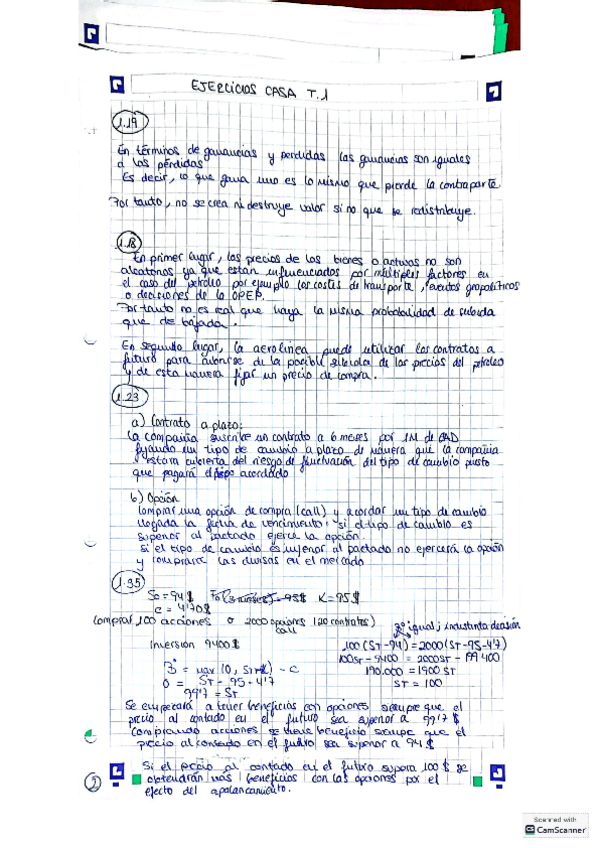 EJERCICIOS CASA T.1
1.19
En términos de ganancias y perdidas las ganancias son iguales
a las pérdidas
Es decir, lo que gana uno es lo mismo que pierde la contraparte.
Por tanto, no se crea ni destruye valor si no que se redistribuye.
1.18
En primer lugar, los precios de los bienes o activos no son
aleatorios ya que están influenciados por múltiples factores en
el caso del petróleo por ejemplo los costes de transporte, eventos geopolíticos
o decisiones de la OPEP.
Por tanto no es real que haya la misma probabilidad de subida
que de bajada.
En segundo lugar, la aerolinea puede utilizar los contratos a
futuro para cubrirse de la posible subida de los precios del petroleo
y de esta manera fijar un precio de compra.
1.23
a) Contrato a plazo:
La compañía suscribe un contrato a 6 meses por 1M de CAD
fijando un tipo de cambio a plazo de manera que la compañia
estara cubierta del riesgo de fluctuación del tipo de cambio puesto
que pagará el tipo acordado
b) Opción
Comprar una opción de compra (call) y acordar un tipo de cambio
llegada la fecha de vencimiento: si el tipo de cambio es
superior al pactado ejerce la opción.
si el tipo de cambio es inferior al pactado no ejercerá la opción
y comprará las divisas en el mercado
1.35
So = 94$ Fo (3 meses) = 95$ K = 95$
c = 4'70$
Comprar 100 acciones o 2000 opciones (20 contratos)
call
Bº igual; indistinta decisión
Inversión 9400$
100 (ST - 94) = 2000 (ST - 95 - 4'7)
100ST - 9400 = 2000ST - 199.400
190.000 = 1900 ST
ST = 100
Bº = max (0, ST - K) - C
0 = ST - 95 - 4'7
99'7 = ST
Se empezará a tener beneficios con opciones siempre que el
precio al contado en el futuro sea superior a 99'7 $
Comprando acciones se tiene beneficio siempre que el
precio al contado en el futuro sea superior a 94 $
Si el precio al contado en el futuro supera 100 $ se
obtendrán más beneficios con las opciones por el
efecto del apalancamiento.
2
Scanned with
CamScanner